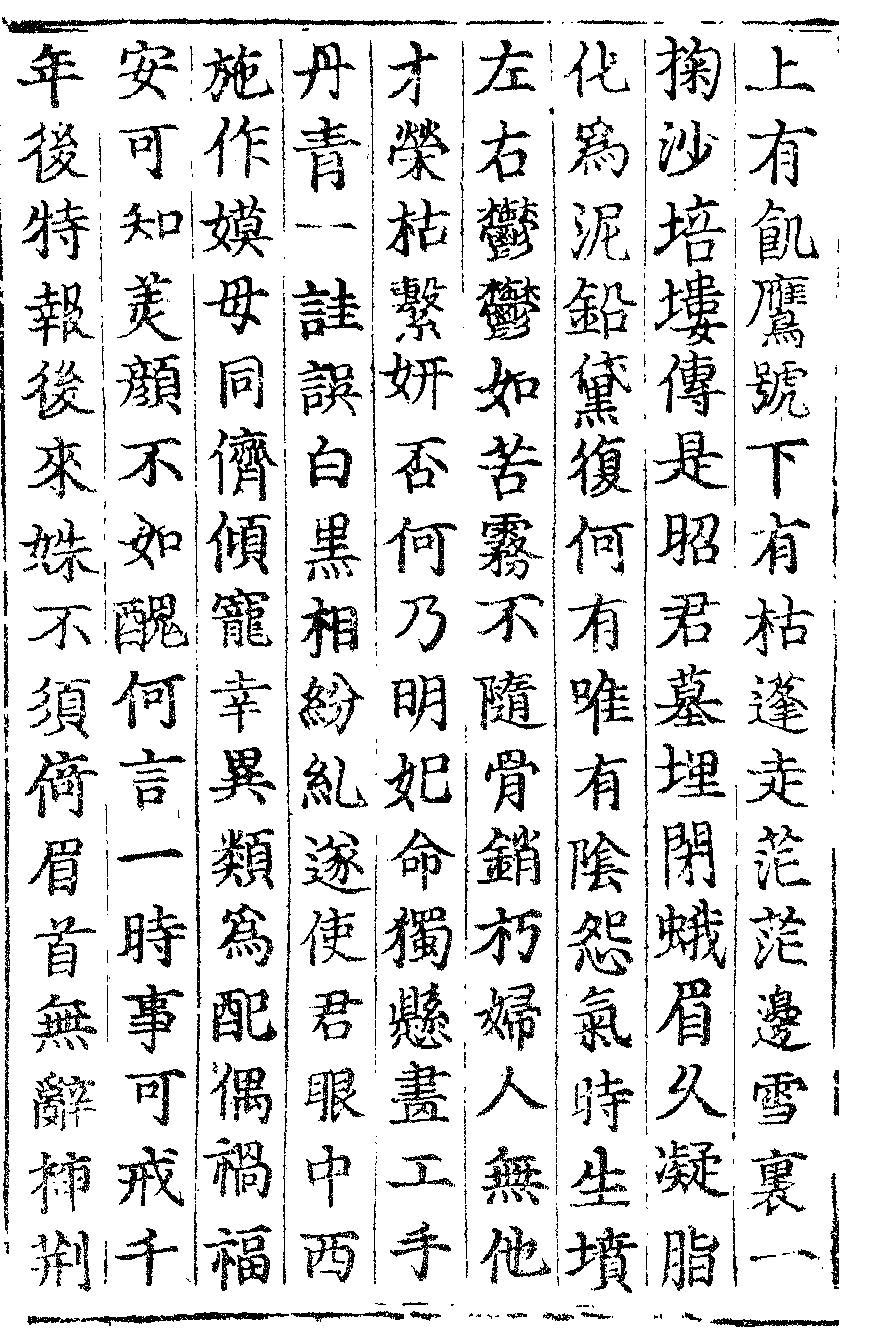 上有飢鷹號下有枯蓬走茫茫邊雪裏一
掬沙培塿傳是昭君墓埋閉蛾眉久凝脂
化爲泥鉛黛復何有唯有陰怨氣時生墳
左右鬱鬱如苦霧不隨骨銷朽婦人無他
才榮枯繫妍否何乃明妃命獨懸畫工手
丹青一詿誤白黑相紛糺遂使君眼中西
施作嫫母同儕傾寵幸異類爲配偶禍福
安可知美顔不如醜何言一時事可戒千
年後特報後來姝不須倚眉首無辭揷荆